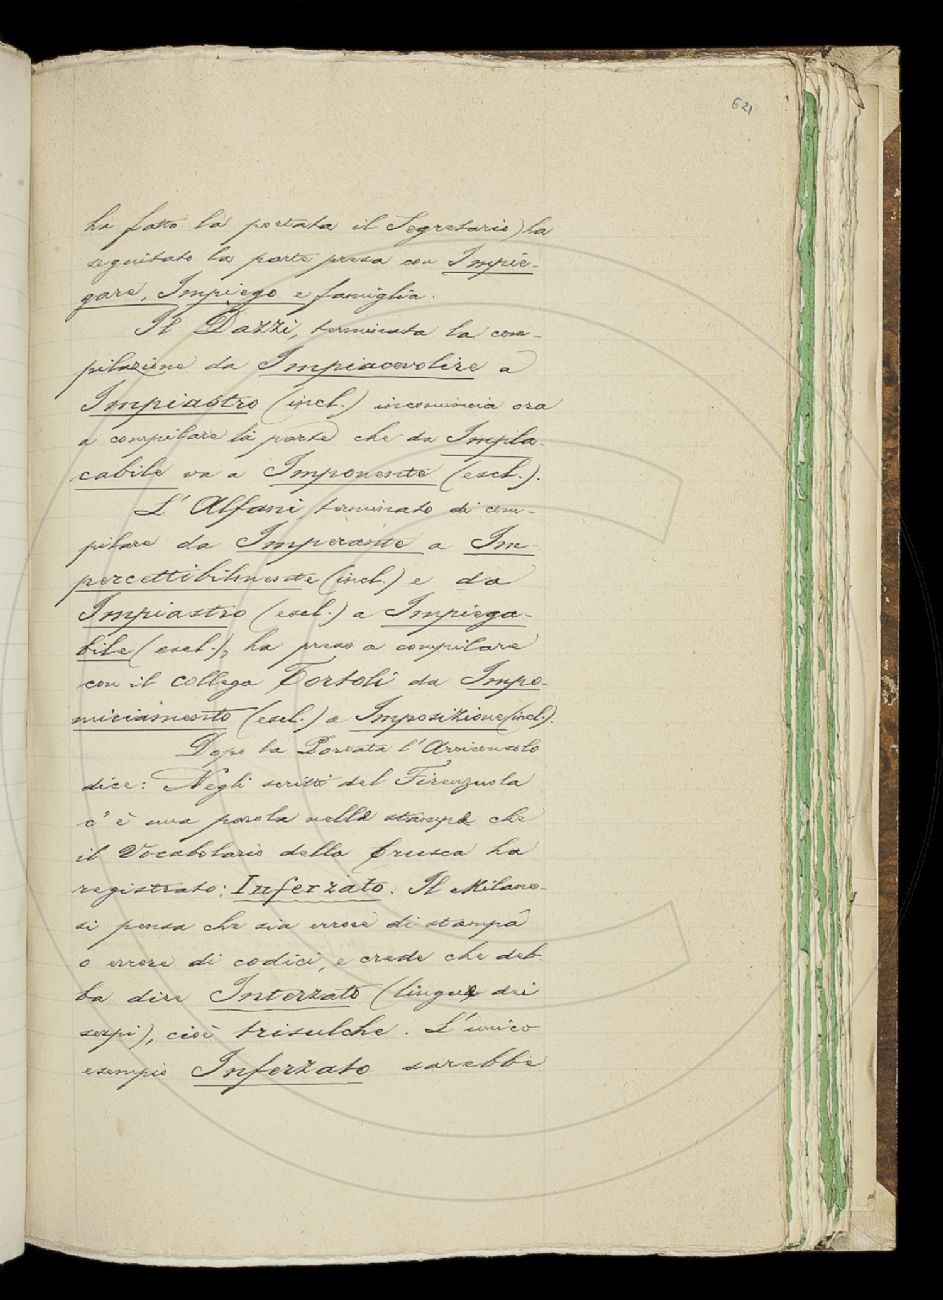 621
ha fatto la portata il Segretario) ha
seguitato la parte presa con Impie-
gare, Impiego e famiglia.
Il Dazzi, terminata la com-
pilazione da Impiacevolire a
Impiastro (incl.) incomincia ora
a compilare la parte che da Impla-
cabile va a Imponente (escl.).
L'Alfani terminato di com-
pilare da Imperante a Im-
percettibilmente (incl.) e da
Impiastro (escl.) a Impiega-
bile (escl.), ha preso a compilare
con il collega Tortoli da Impo-
miciamento (escl.) a Imposizione (incl.).
Dopo la Portata l'Arciconsolo
dice: Negli scritti del Firenzuola
c'è una parola nelle stampe che
il Vocabolario della Crusca ha
registrato: Inferzato. Il Milane-
si pensa che sia errore di stampa
o errore di codici, e crede che deb-
ba dire Interzato (lingue dei
serpi), cioè trisulche. L'unico
esempio Inferzato sarebbe